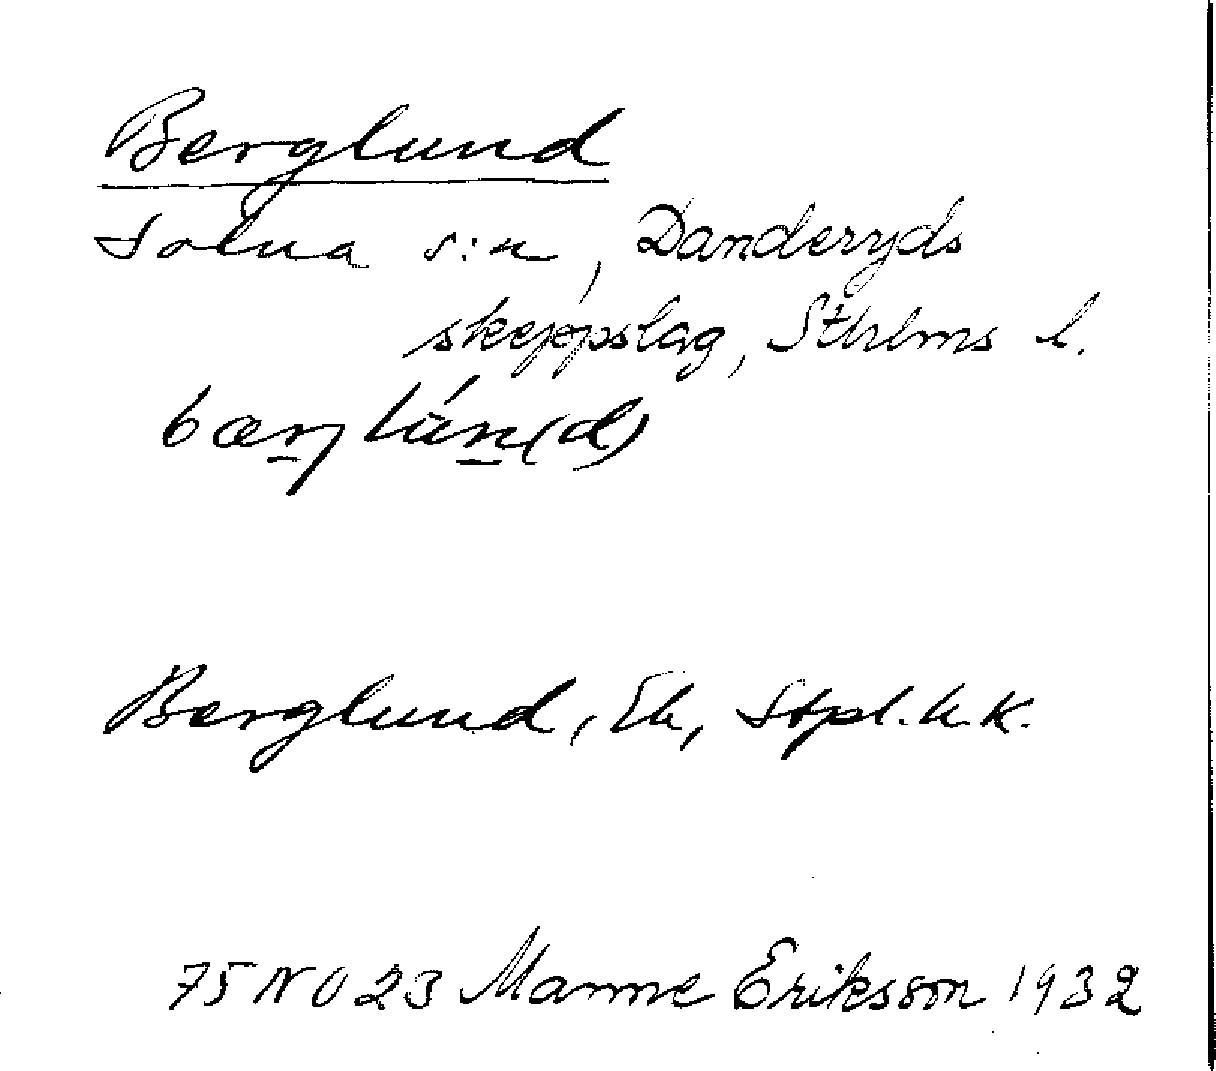 Berglund
Solna s:n, Danderyds
skeppslag, Sthlms l.
Berglund, Eh, Stpl. h. k.
75 NO 23 Manne Eriksson 1932